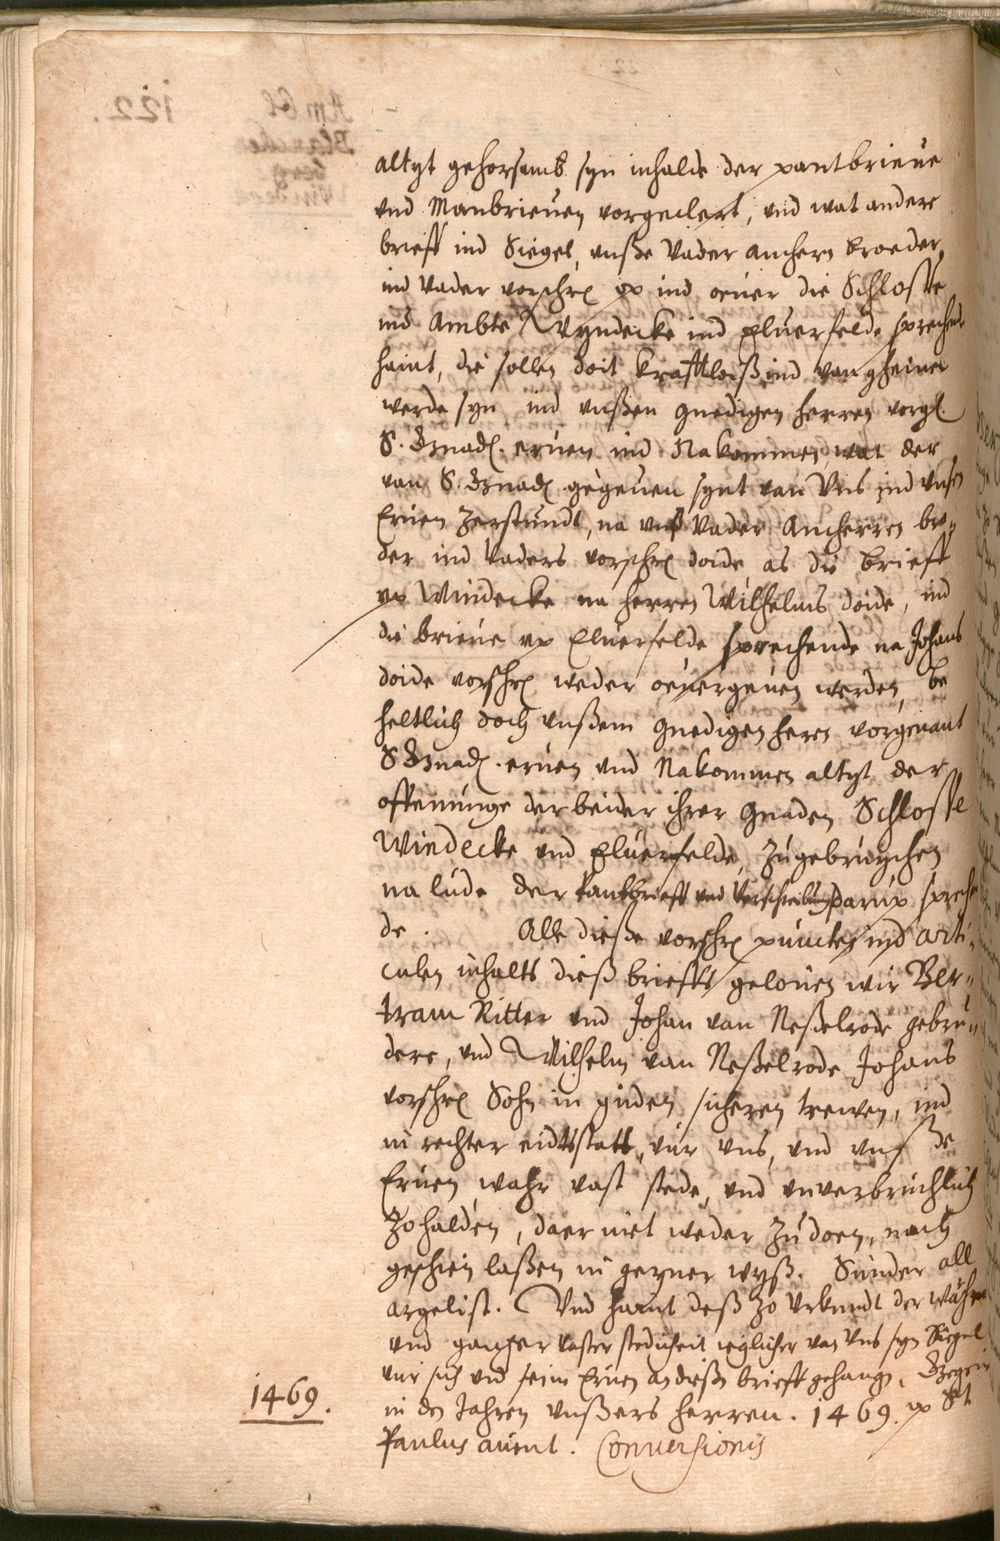 altyt gehorsamb syn inhalde der pantbrieue
vnd Manbrieuen vorgeclert, vnd wat andere
brieff ind Siegel, vnße Vader anchern broeder,
ind Vader vorschr. vp ind oeuer die Schlosse
ind Ambte Wyndecke ind Eluerfelde sprechende
haint, die sollen doit krafftloiß ind van gheiner
werde syn, ind vnßen gnedigen herren vorgl.
S. Gnad. eruen ind Nakommen, wat der
van S. Gnad. gegeuen synt van Vns ind vnsen
Eruen Zerstundt, na vnß Vader Ancherren bro„
der ind Vaders vorschr. doide as die brieff
vp Windecke na herren Wilhelms doide, ind
die brieue vp Eluerfelde sprechende na Johans
doide vorschr. weder oeuergeuen werden, be
heltlich doch vnßem gnedigen heren vorgenant
S Gnad. eruen vnd Nakommen altyt der
offenunge der beider ihrer Gnaden Schlosse
Windecke vnd Eluerfelde, zugebruychen
na lude der Pantbrieff vnd Verschreibung darup spreche
de. Alle dieße vorschr. puncten ind arti„
culen inhalts dieß brieffs gelouen wir Ber„
tram Ritter vnd Johan van Neßelrode gebru„
dere, vnd Wilhelm van Neßelrode Johans
vorschr. Sohn in guden sicheren trewen, ind
in rechter eidtsstatt, vur vns, vnd vnße
Eruen, wahr vast stede, vnd vnverbruchlich
zohalden, daer niet weder zudoen, noch
geschien laßen in geyner wyß. Sunder all
argelist. Vnd haint deß zo Vrkundt der wahr
vnd gantzer vaster stedicheit ieglicher van Vns syn Siegel
vur sich vnd seine Eruen an dießen brieff gehangen, Gegeuen
in den Jahren vnßers herren. 1469. vp St
Paulus auent. Conuersionis
1469.
122.
Ambt
Blanckenberg
Windeck